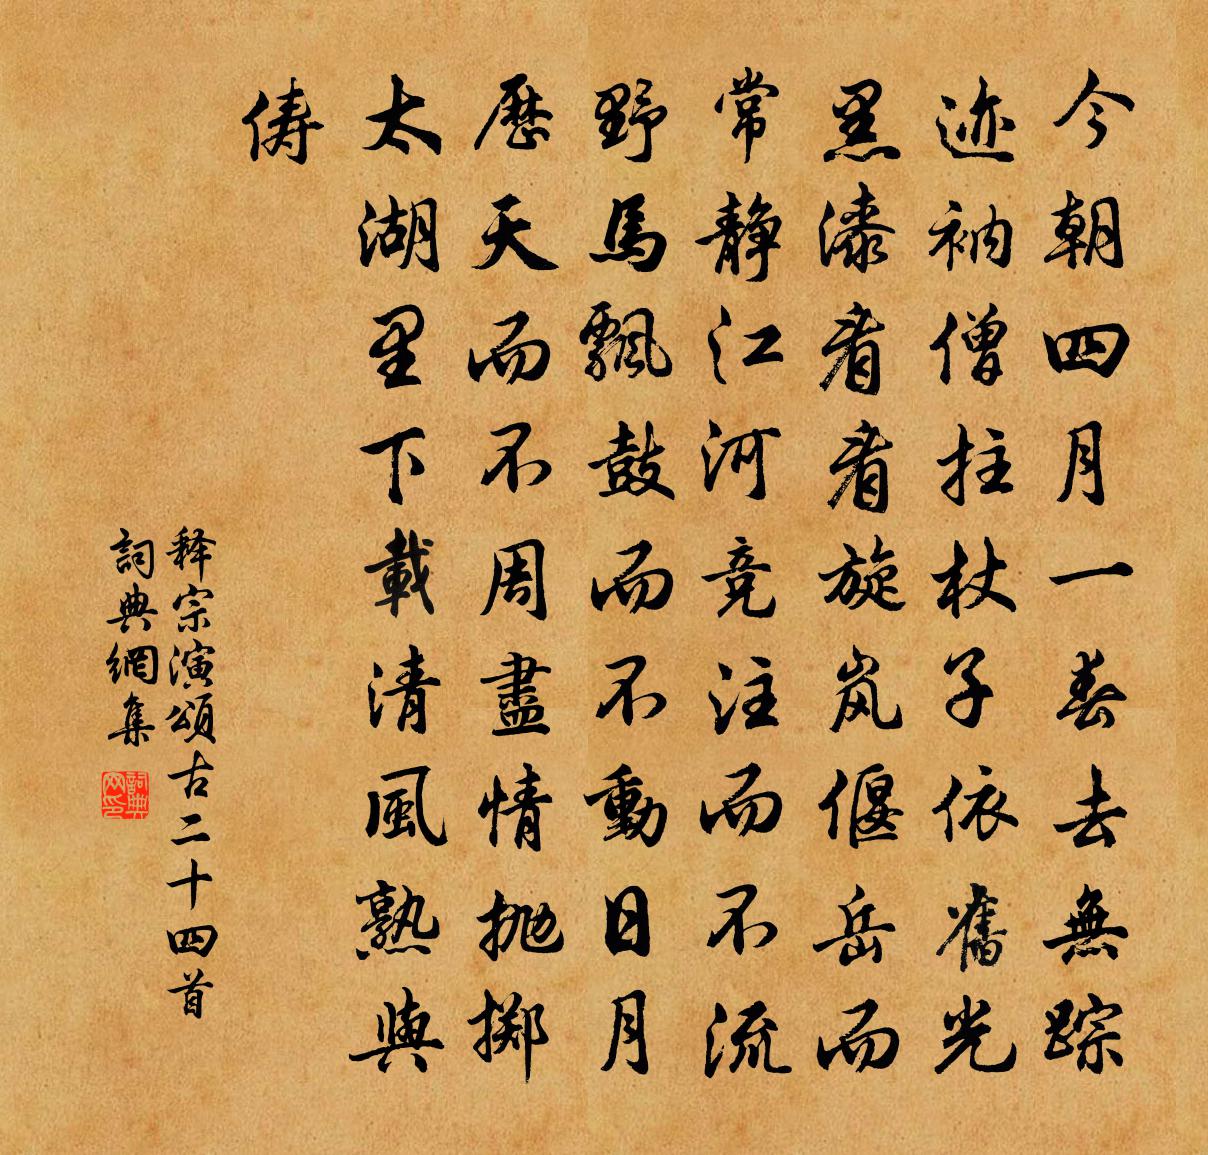 今朝四月一春去無踪
迹衲僧拄杖子依舊光
黑漆看看旋岚偃岳而
常静江河竞注而不流
野馬飄鼓而不動日月
歷天而不周盡情抛掷
太湖里下載清風熟與
俦
释宗演頌古二十四首
詞典網集
詞典
网印